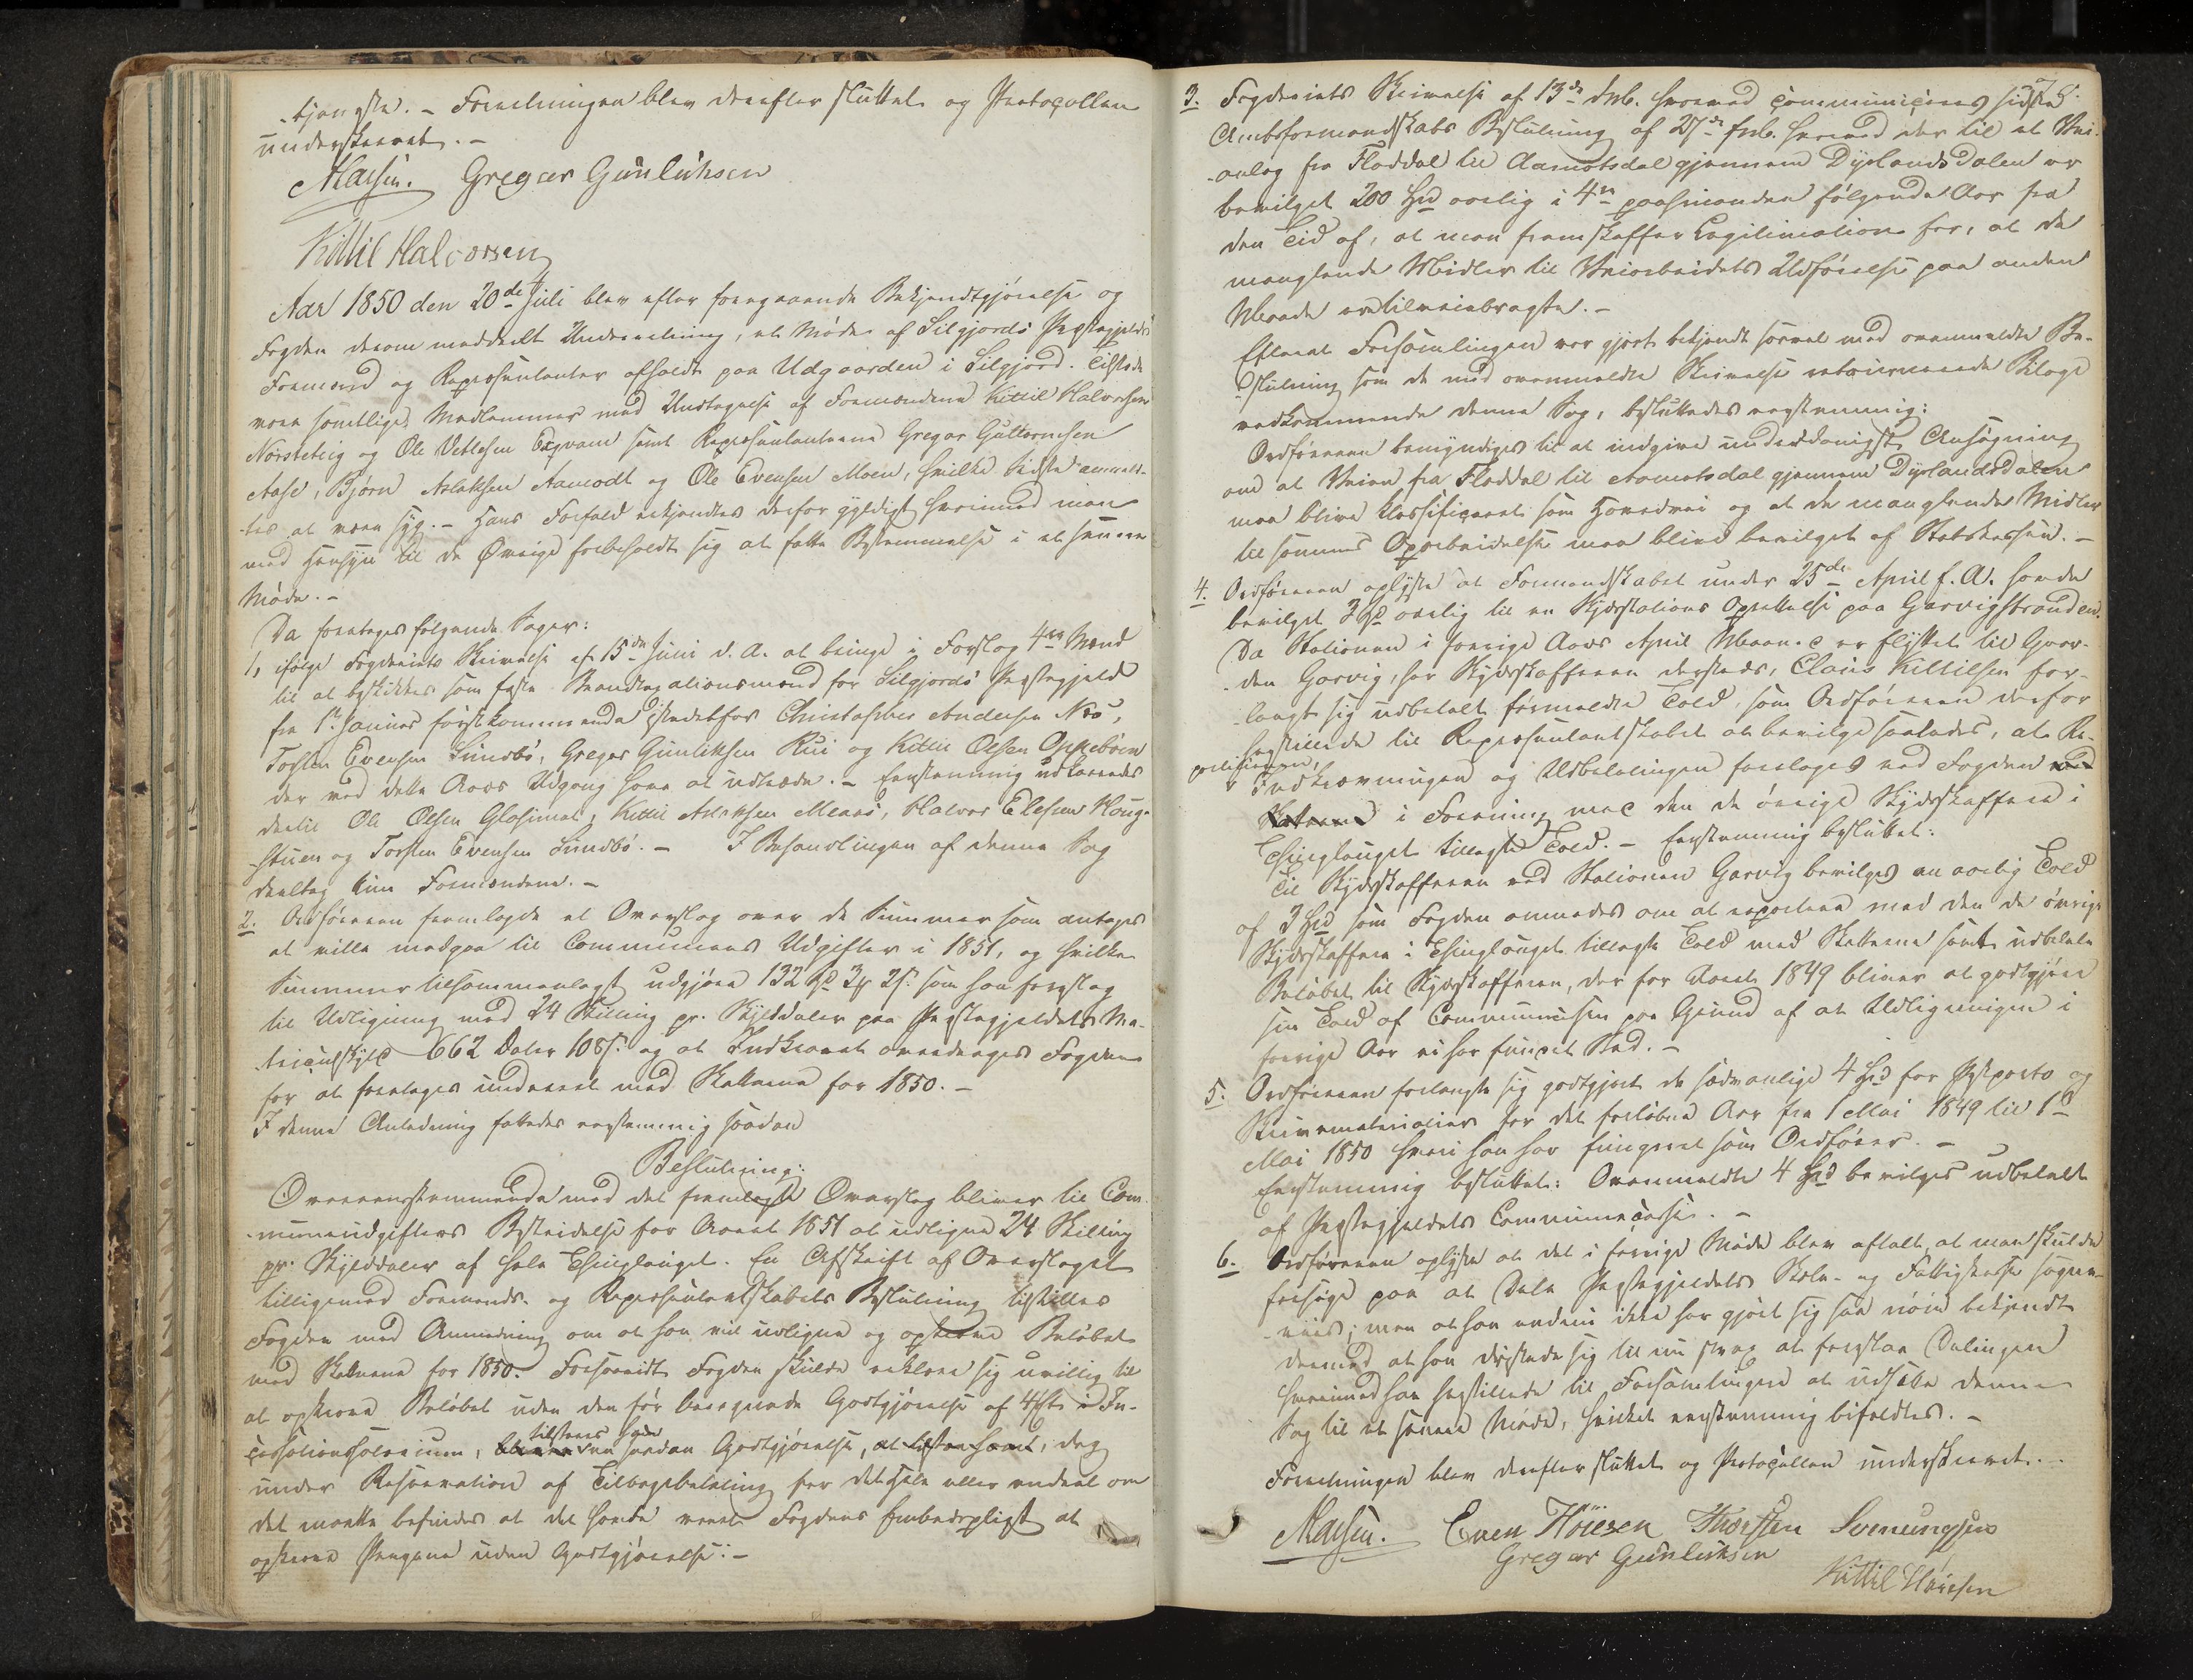 tjeneste. – Forretningen blev derefter sluttet og Protocollen
underskrevet. –
Gregar Gunleiksen
Kittil Halvorsen
Aar 1850 den 20de Juli blev efter foregaaende Bekjendtgjørelse og
Fogden derom meddeelt Underretning, et Møde af Silgjords Præstegjelds
Formænd og Repræsentanter afholdt paa Udgaarden i Silgjord. Tilstede
vare samtlige Medlemmer med Undtagelse af Formændene Kittil Halvorsen
Norsteteig og Ole Vetlesen samt Repræsentanterne Gregar Guttormsen
Aase, Bjørn Aslaksen Aamodt og Ole Evensen Moen, hvilke sidste anmeld-
tes at være syg. – Hans Forfald erkjendtes derfor gyldigt hvorimod man
med Hensyn til de Øvrige forbeholdt sig at fatte Bestemmelse i et senere
Møde. –
Da foretoges følgende Sager:
1, ifølge Fogderiets Skrivelse af 15de Juni d. A. at bringe i Forslag 4re Mænd
til at beskikkes som faste Brandtaxationsmænd for Silgjords Præstegjeld
fra 1te Januar førstkommende istedetfor Christopher Andersen Næs,
Torsten Evensen Sundbø, Gregar Gunleiksen Rui og Kittil Olsen Oppebøen
der ved dette Aars Udgang have at udtræde. – Eenstemmig udkaaredes
dertil Ole Olsen Glosimot, Kittil Aslaksen Mæaas, Halvor Ellefsen Haug-
stuen og Torsten Evensen Sundbø. – I Behandlingen af denne Sag
deeltog kun Formændene. –
2. Ordføreren fremlagde et Overslag over de Summer som antages
at ville medgaa til Communens Udgifter i 1851, og hvilke
Summer tilsammenlagt udgjøre 132 Spd 3 ꝳ 2 s. som han foreslog
til Udligning med 24 Skilling pr. Skylddaler paa Præstegjeldets Ma-
triculskyld 662 Daler 108 s. og at Indkrævet overdrages Fogden
for at foretages underet med Skatterne for 1850. –
I denne Anledning fattedes eenstemmig saadan
Beslutning:
Overeensstemmende med det fremlagte Overslag bliver til Com-
muneudgifters Bestridelse for Aaret 1851 at udligne 24 Skilling
pr. Skylddaler af hele Thinglauget. En Afskrift af Overslaget
tilligemed Formands- og Repræsentantskabets Beslutning tilstilles
Fogden med Anmodning om at han vil udligne og opkræve Beløbet
med Skatterne for 1850. Forsaavidt Fogden skulde erklære sig uvillig til
at opkræve Beløbet uden den før beregnede Godtgjørelse af 4 pCt i In-
cassationssalarium, tilstaaes ham en saadan Godtgjørelse, dog
under Reservation af Tilbagebetaling for det Hele eller endeel om
det maatte befindes at det havde været Fogdens Embedspligt at
opkræve Pengene uden Godtgjørelse. –
3. Fogderiets Skrivelse af 13de hvorved communiceres sidste
Amtsformandskabs Beslutning af 27de hvorved der til et Vei-
anlæg fra Fladdal til Aamotsdal gjennem Dyrlandsdalen er
bevilget 200 Spd aarlig i 4re paa hinanden følgende Aar fra
den Tid af, at man fremskaffer Legitimation for, at de
manglende Midler til Veiarbeidets Udførelse paa anden
Maade ere tilveiebragte. –
Efterat Forsamlingen var gjort bekjendt saavel med ovenmeldte Be-
slutning som de med ovenmeldte Skrivelse retournerede Bilage
vedkommende denne Sag, besluttedes eenstemmig:
Ordføreren bemyndiges til at indgive underdanigst Ansøgning
om at Veien fra Fladdal til Aamotsdal gjennem Dyrlandsdalen
maa blive klassificeret som Hovedvei og at de manglende Midler
til sammes Oparbeidelse maa blive bevilget af Statskassen. –
4. Ordføreren oplyste at Formandskabet under 25de April f. A. havde
bevilget 3 Spd aarlig til en Skydsstations Oprettelse paa Garvigstranden.
Da Stationen i forrige Aars April Maaned er flyttet til Gaar-
den Garvig, har Skydsskafferen dersteds, Claus Kittilsen for-
langt sig udbetalt førmeldte Told, som Ordføreren derfor
henstillede til Repræsentantskabet at bevilge saaledes, at Re-
partitionen,
Indkrævningen og Udbetalingen foretages ved Fogden
i Forening med den de øvrige Skydsskaffere i
Thinglauget tillagte Told. – Eenstemmig besluttet:
Til Skydsskafferen ved Stationen Garvig bevilges en aarlig Told
af 3 Spd som Fogden anmodes om at repartere med den de øvrige
Skydsskaffere i Thinglauget tillagte Told med Skatterne samt udbetale
Beløbet til Skydsskafferen, der for Aaret 1849 bliver at godtgjøre
sin Told af Communecassen paa Grund af at Udligningen i
forrige Aar ei har fundet Sted. –
5. Ordføreren forlangte sig godtgjort de sædvanlige 4 Spd for Postporto og
Skrivematerialier for det forløbne Aar fra 1 Mai 1849 til 1te
Mai 1850 hvori han har fungeret som Ordfører. –
Eenstemmig besluttet: Ovenmeldte 4 Spd bevilges udbetalt
af Præstegjeldets Communecasse. –
6. Ordføreren oplyste at det i forrige Møde blev aftalt at man skulde
forsøge paa at Dele Præstegjeldets Skole- og Fattigkasse sogne-
viis; men at han endnu ikke har gjort sig saa nøie bekjendt
dermed at han dristede sig til nu strax at foreslaa Delingen
hvorimod han henstillede til Forsamlingen at udsætte denne
Sag til et senere Møde, hvilket eenstemmig bifaldtes. –
Forretningen blev derefter sluttet og Protocollen underskrevet. –
Even Høiesen Thorsten Svenungsen
Gregar Gunleiksen
Kittil Høiesen